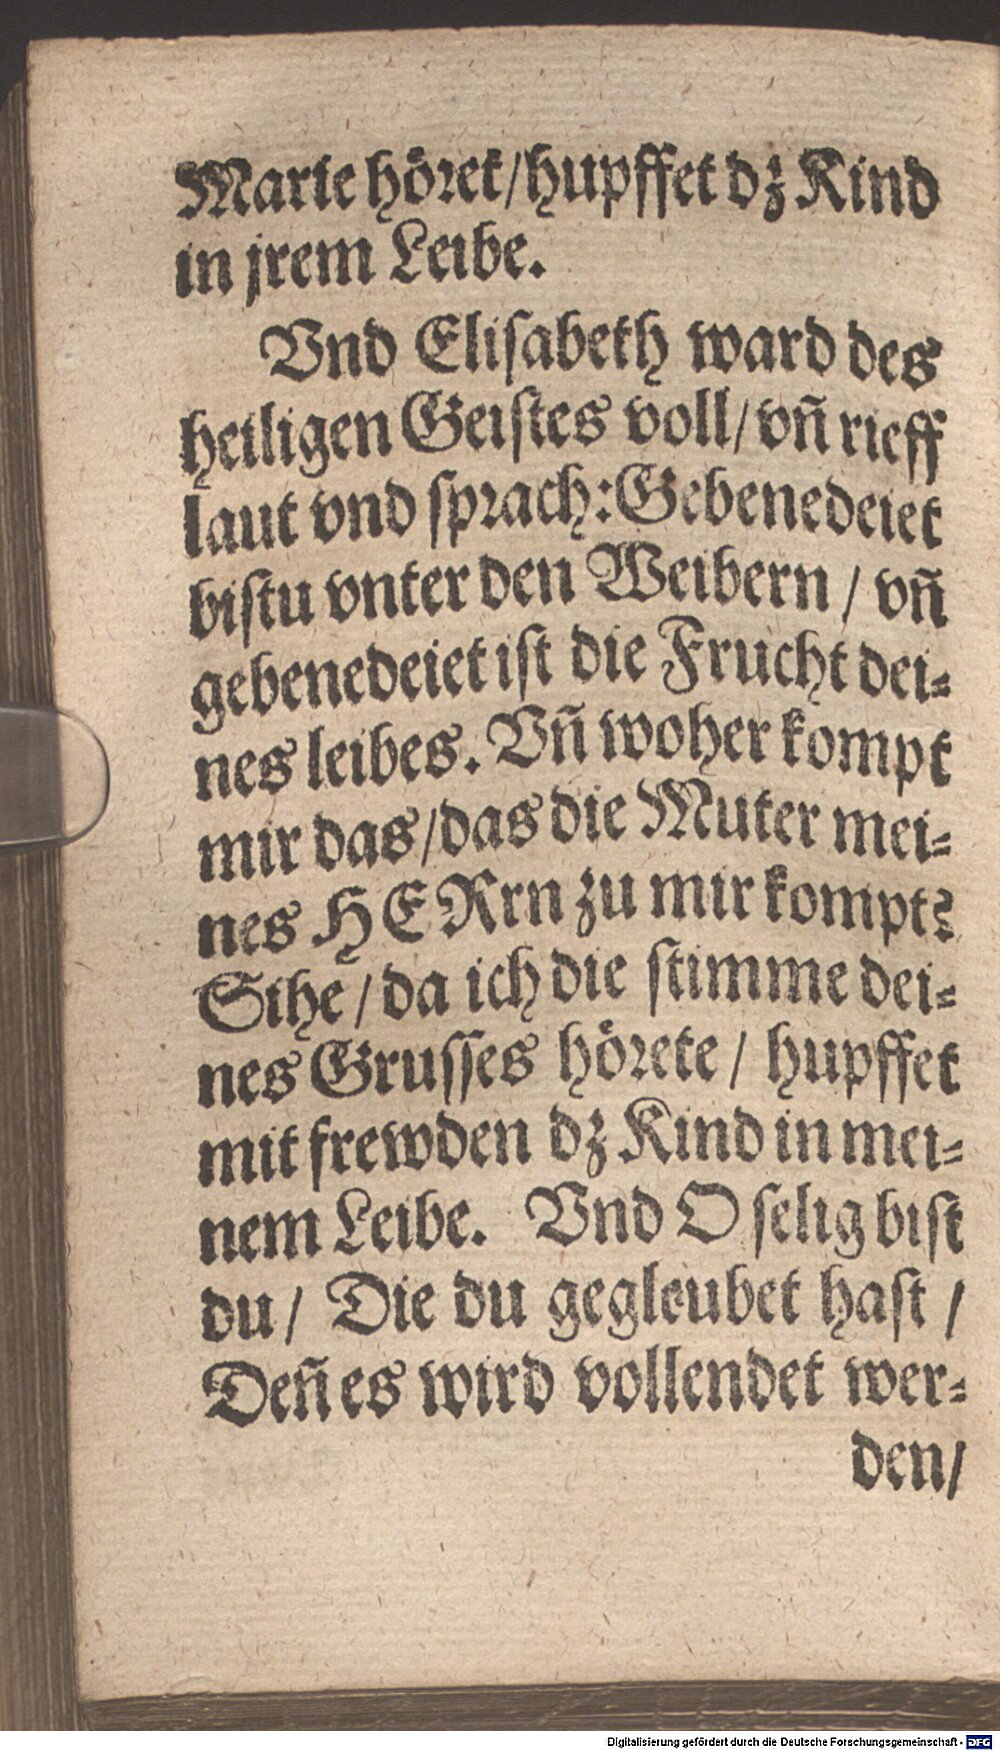 Marie höret/hupffet dz Kind
in jrem Leibe.
Vnd Elisabeth ward des
heiligen Geistes voll/vñ rieff
laut vnd sprach:Gebenedeiet
bistu vnter den Weibern / vñ
gebenedeiet ist die Frucht dei⸗
nes leibes. Vñ woher kompt
mir das/das die Muter mei⸗
nes HERrn zu mir kompt?
Sihe/da ich die stimme dei⸗
nes Grusses hörete / hupffet
mit frewden dz Kind in mei⸗
nem Leibe. Vnd O selig bist
du/ Die du gegleubet hast /
Deñ es wird vollendet wer⸗
den/
Digitalisierung gefördert durch die Deutsche Forschungsgemeinschaft - DFG